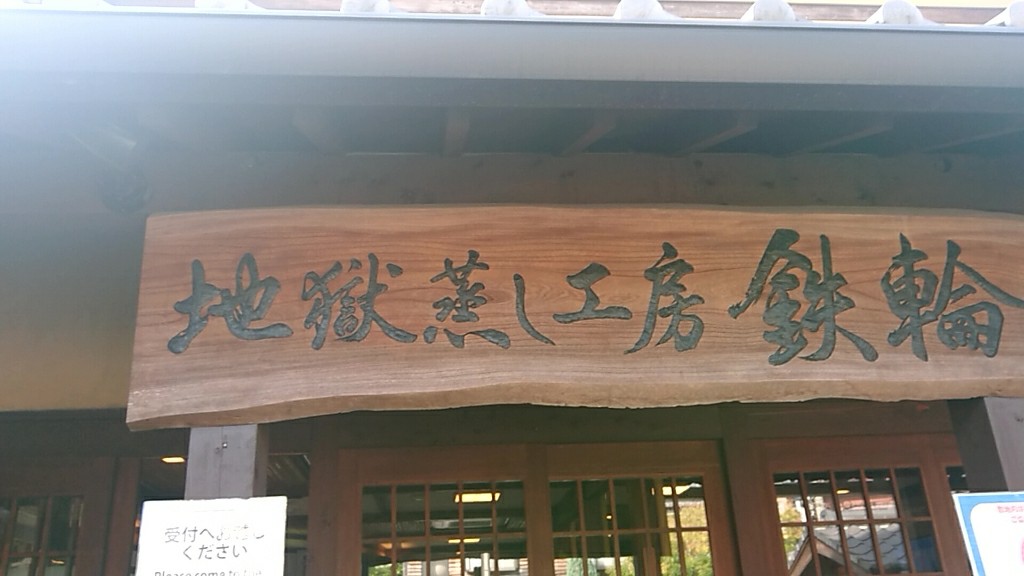 地獄蒸し工房 鉄輪
受付へお越し
ください
Please come to the